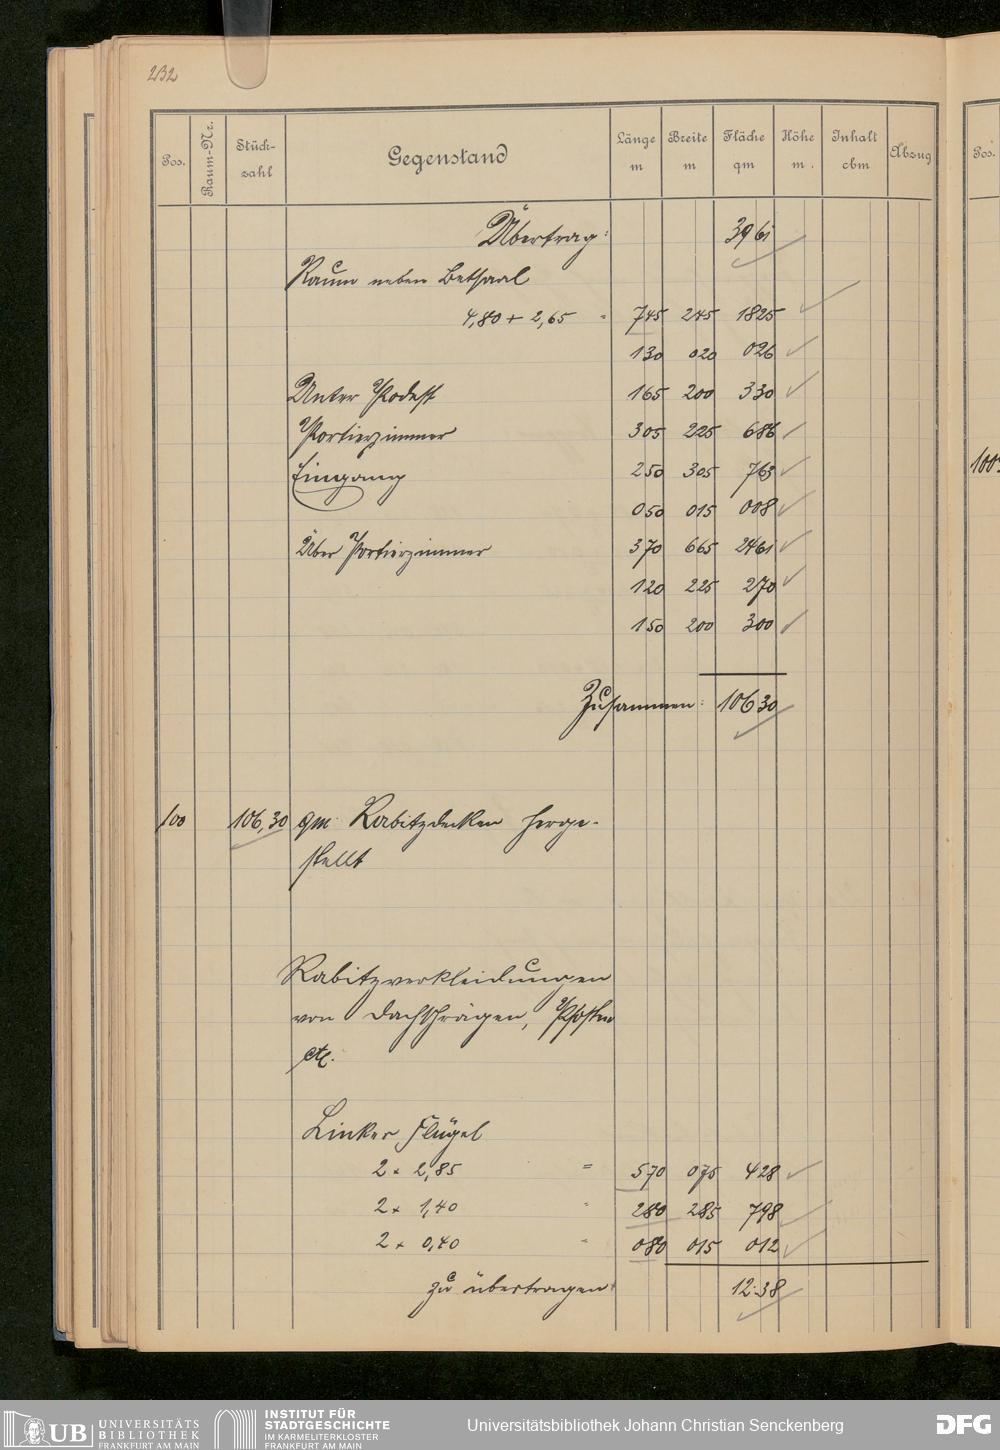 232
Pos. Raum-Nr. Stück-zahl Gegenstand Länge m Breite m Fläche qm Höhe m. Inhalt cbm Abzug
Pos.
Übertrag: 39 61
Raum neben Betsaal
4,80 + 2,65 = 7 45 2 45 18 25
1 30 0 20 0 26
Unter Podest 1 65 2 00 3 30
Portierzimmer 3 05 2 25 6 86
Eingang 2 50 3 05 7 63
0 50 0 15 0 08
Über Portierzimmer 3 70 6 65 24 61
1 20 2 25 2 70
1 50 2 00 3 00
Zusammen: 106 30
100 106,30 qm Rabitzdecken herge-
stellt
Rabitzverkleidungen
von Dachschrägen, Pfosten
etc.
Linker Flügel
2 x 2,85 = 5 70 0 75 4 28
2 x 1,40 " 2 80 2 85 7 98
2 x 0,40 " 0 80 0 15 0 12
zu übertragen 12 38
UB UNIVERSITÄTS
BIBLIOTHEK
FRANKFURT AM MAIN
INSTITUT FÜR
STADTGESCHICHTE
IM KARMELITERKLOSTER
FRANKFURT AM MAIN
Universitätsbibliothek Johann Christian Senckenberg
DFG